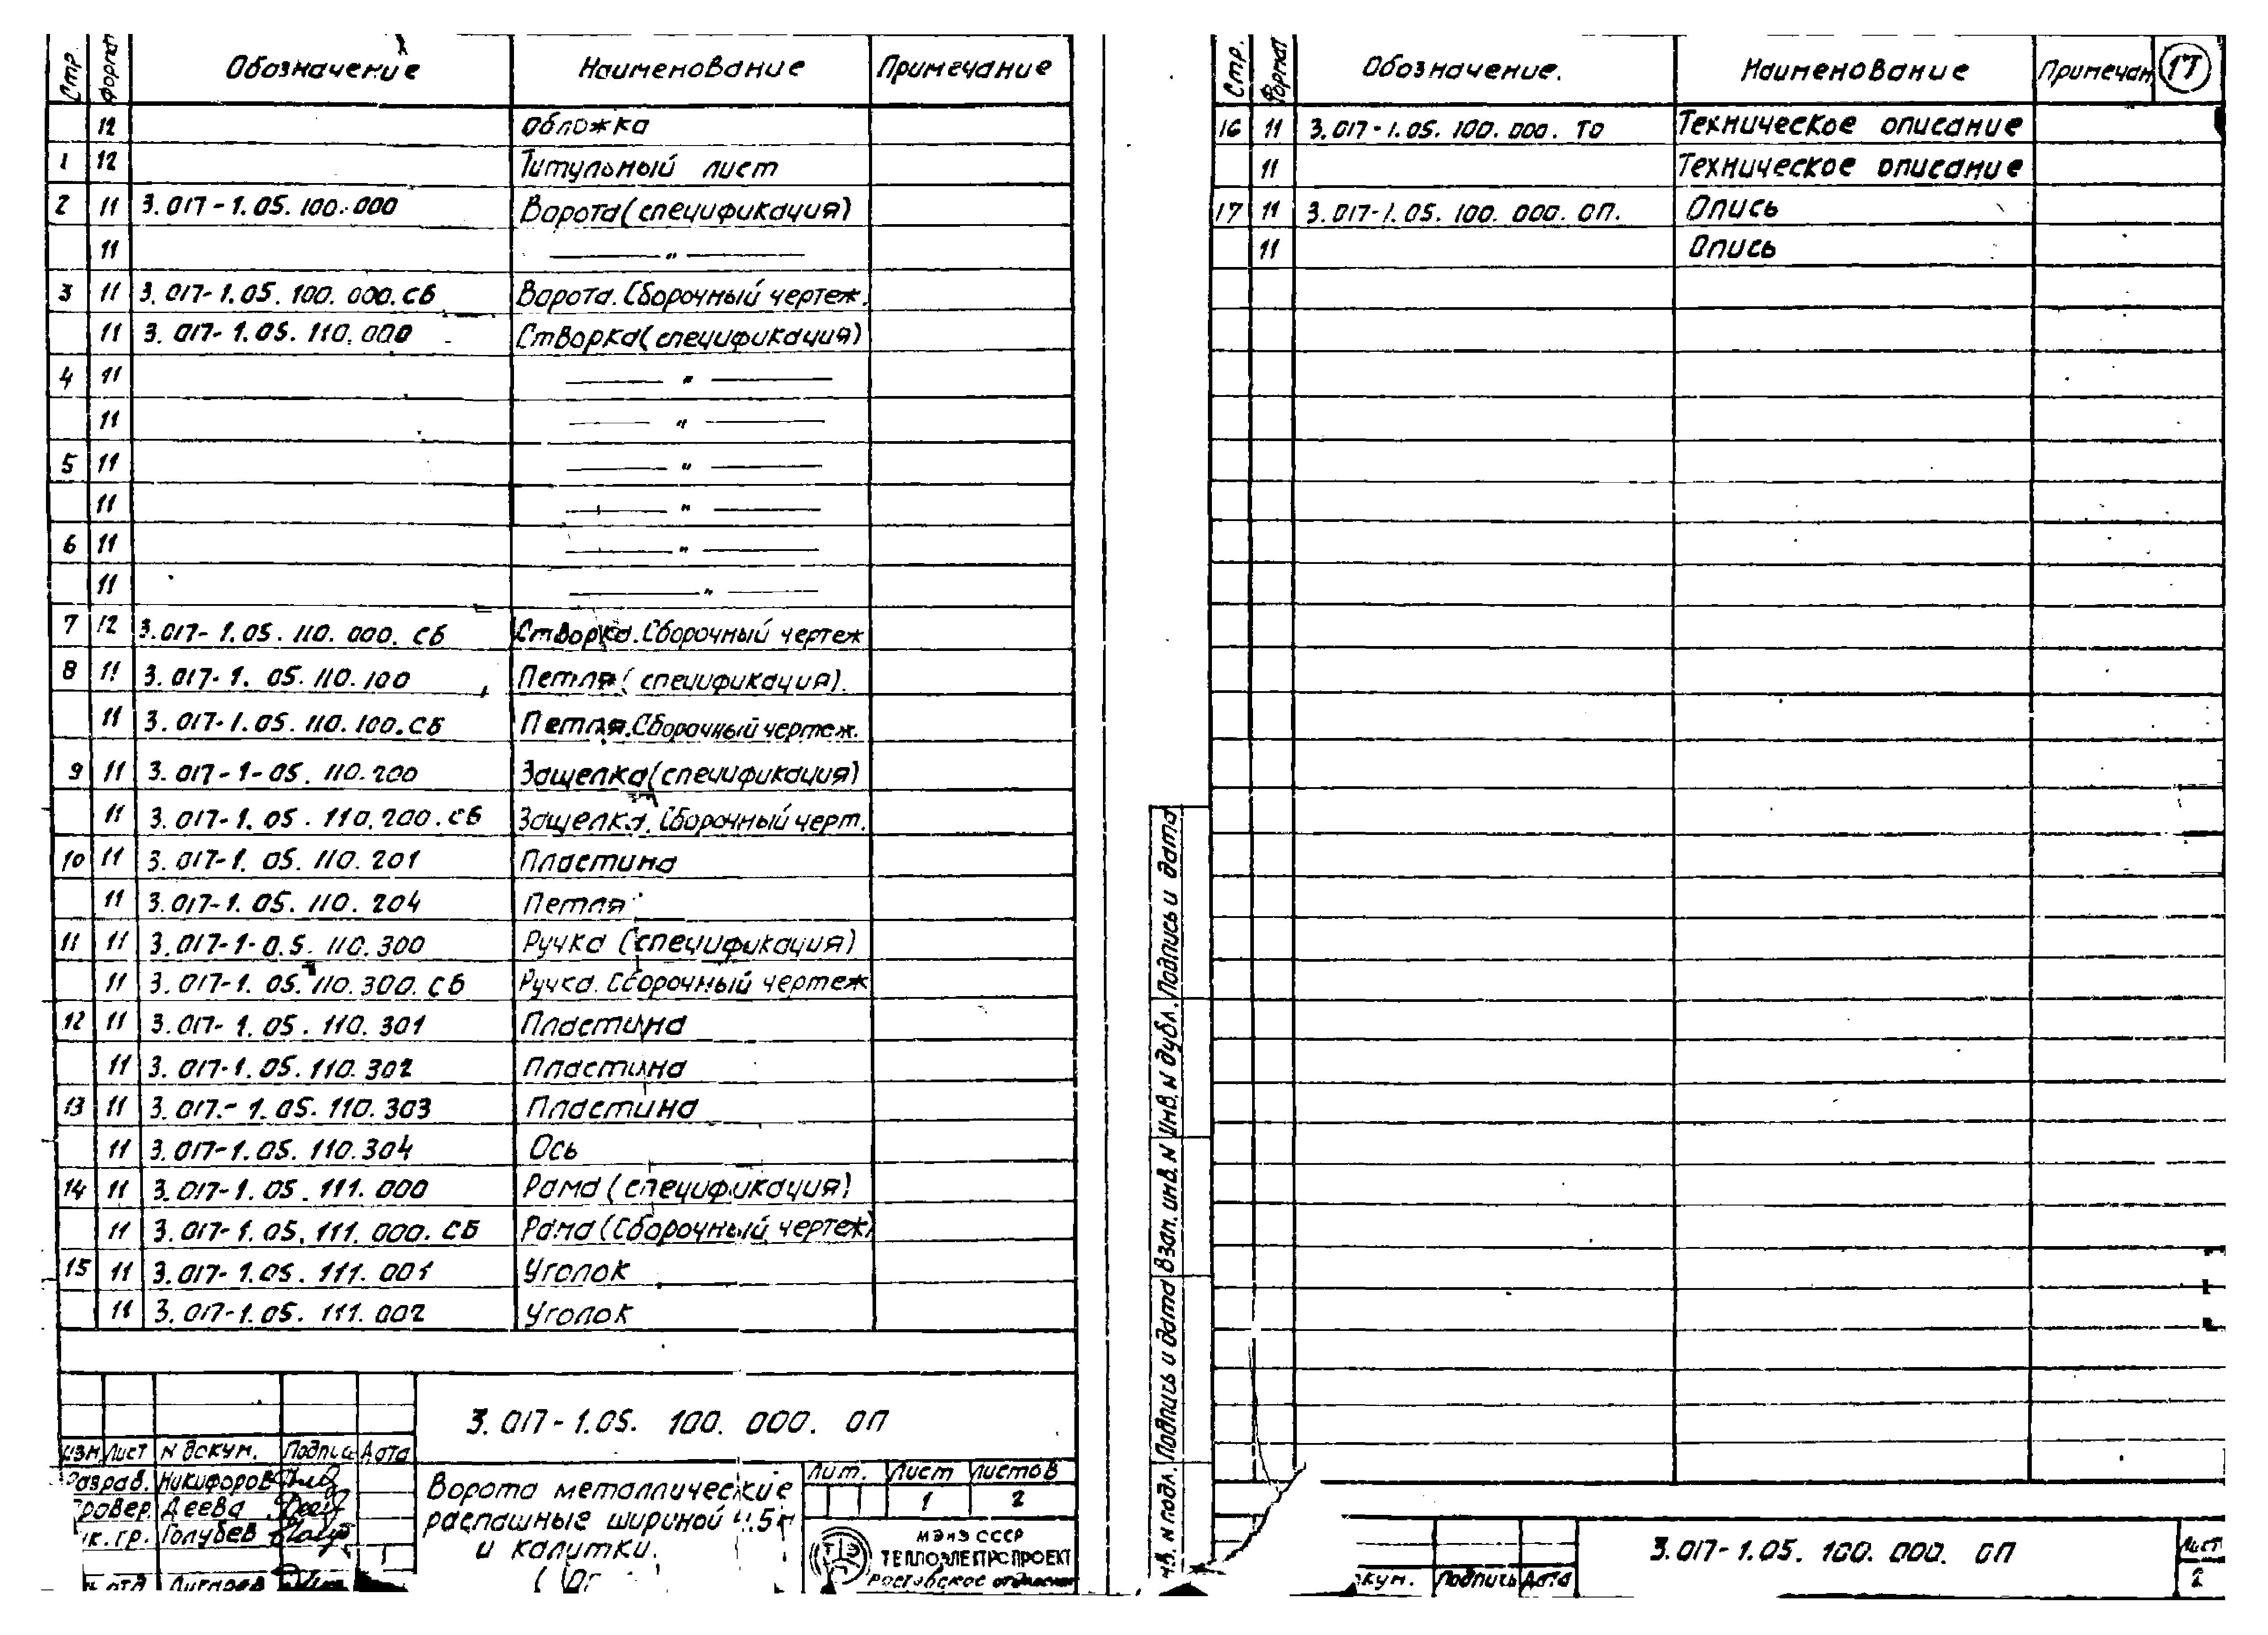 Стр. Формат Обозначение Наименование Примечание
12 Обложка
1 12 Титульный лист
2 11 3.017-1.05.100.000 Ворота (спецификация)
11 — " —
3 11 3.017-1.05.100.000.СБ Ворота. Сборочный чертеж.
11 3.017-1.05.110.000 Створка (спецификация)
4 11 — " —
11 — " —
5 11 — " —
11 — " —
6 11 — " —
11 — " —
7 12 3.017-1.05.110.000.СБ Створка. Сборочный чертеж
8 11 3.017-1.05.110.100 Петля (спецификация).
11 3.017-1.05.110.100.СБ Петля. Сборочный чертеж.
9 11 3.017-1-05.110.200 Защелка (спецификация)
11 3.017-1.05.110.200.СБ Защелка. Сборочный черт.
10 11 3.017-1.05.110.201 Пластина
11 3.017-1.05.110.204 Петля
11 11 3.017-1-0.5.110.300 Ручка (спецификация)
11 3.017-1.05.110.300.СБ Ручка. Сборочный чертеж
12 11 3.017-1.05.110.301 Пластина
11 3.017-1.05.110.302 Пластина
13 11 3.017.-1.05.110.303 Пластина
11 3.017-1.05.110.304 Ось
14 11 3.017-1.05.111.000 Рама (спецификация)
11 3.017-1.05.111.000.СБ Рама (Сборочный чертеж)
15 11 3.017-1.05.111.001 Уголок
11 3.017-1.05.111.002 Уголок
3.017-1.05.100.000.ОП
Изм. Лист N докум. Подпись Дата
Разраб. Никифоров
Провер. Деева
Рук. гр. Голубев
Ворота металлические
распашные шириной 4.5м
и калитки.
Лит. Лист Листов
1 2
МЭиЭ СССР
ТЕПЛОЭЛЕКТРОПРОЕКТ
Ростовское отделение
Стр. Формат Обозначение. Наименование Примечан 17
16 11 3.017-1.05.100.000.ТО Техническое описание
11 Техническое описание
17 11 3.017-1.05.100.000.ОП. Опись
11 Опись
Подпись и дата
Инв. N дубл.
Взам. инв. N
Подпись и дата
Инв. N подл.
докум. Подпись Дата
3.017-1.05.100.000.ОП
Лист
2